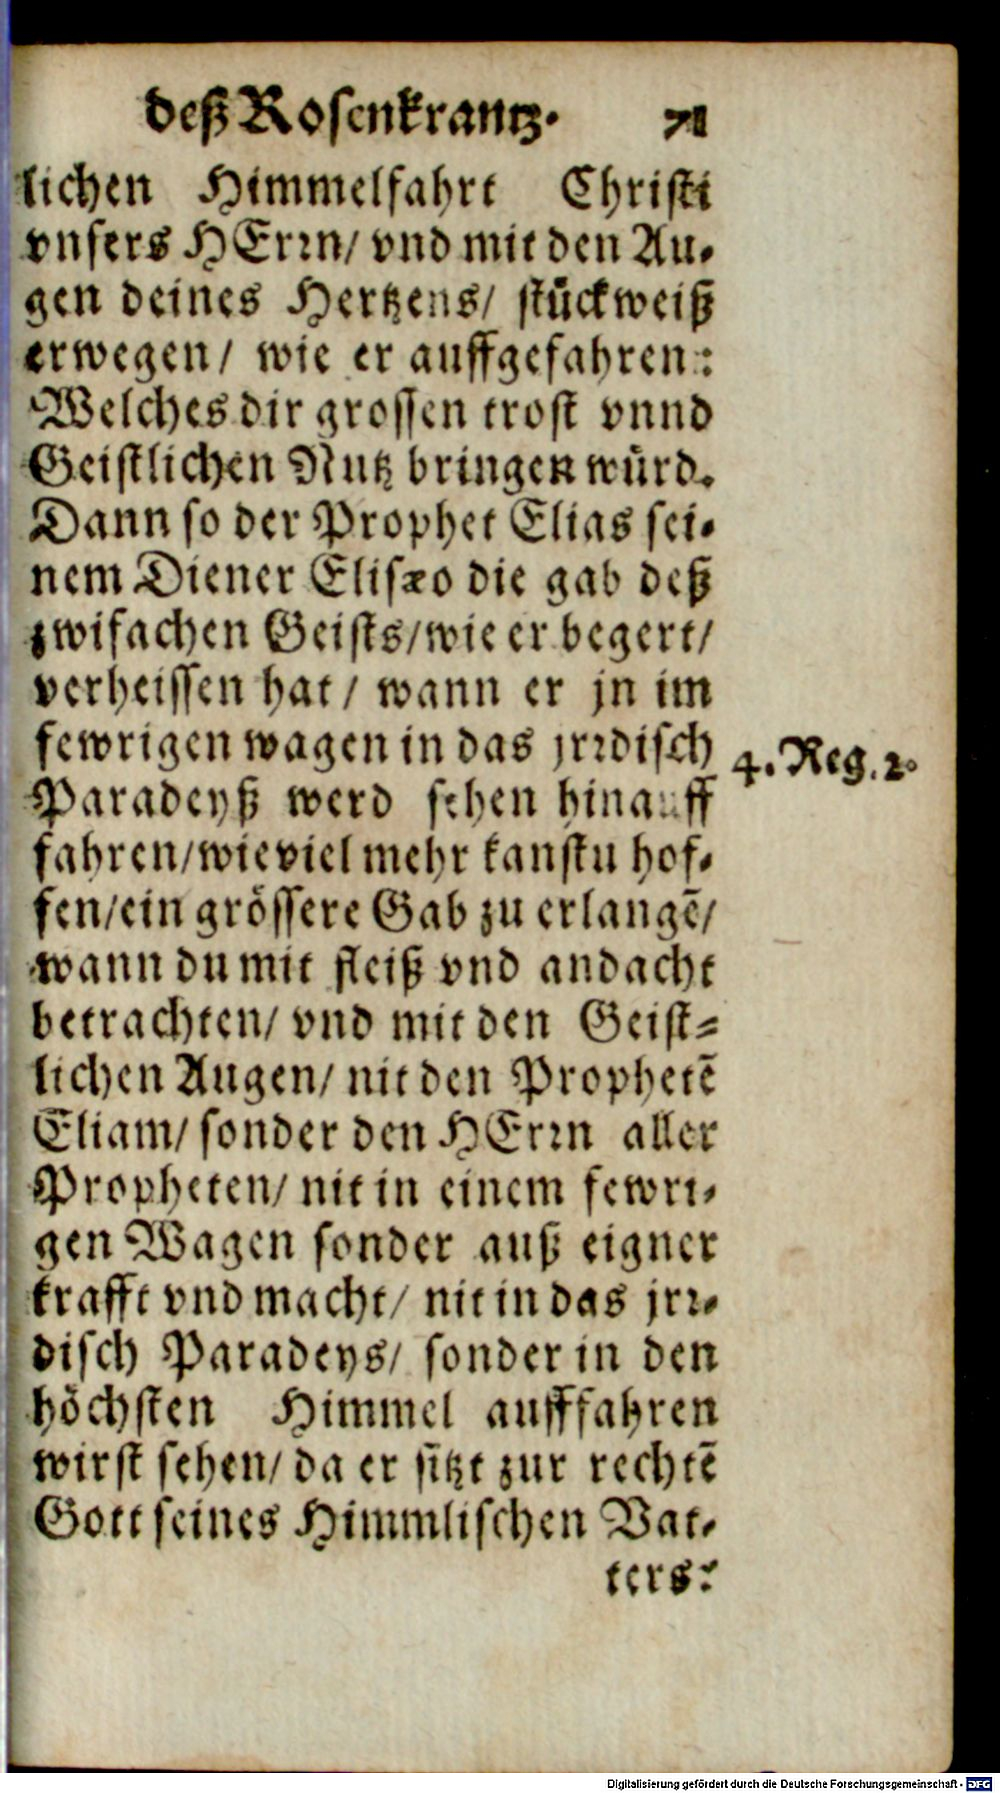 deß Rosenkrantz. 71
lichen Himmelfahrt Christi
vnsers HErrn/ vnd mit den Au-
gen deines Hertzens/ stückweiß
erwegen/ wie er auffgefahren:
Welches dir grossen trost vnnd
Geistlichen Nutz bringen würd.
Dann so der Prophet Elias sei-
nem Diener Elisæo die gab deß
zwifachen Geists/wie er begert/
verheissen hat/ wann er jn im
fewrigen wagen in das jrrdisch
4. Reg. 2.
Paradeyß werd sehen hinauff
fahren/wieviel mehr kanstu hof-
fen/ein grössere Gab zu erlangẽ/
wann du mit fleiß vnd andacht
betrachten/ vnd mit den Geist-
lichen Augen/ nit den Prophetẽ
Eliam/ sonder den HErrn aller
Propheten/ nit in einem fewri-
gen Wagen sonder auß eigner
krafft vnd macht/ nit in das jrr-
disch Paradeys/ sonder in den
höchsten Himmel aufffahren
wirst sehen/ da er sitzt zur rechtẽ
Gott seines Himmlischen Vat-
ters:
Digitalisierung gefördert durch die Deutsche Forschungsgemeinschaft - DFG